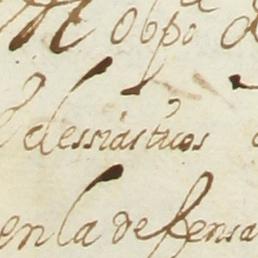 Obpo
Eclessiasticos
en la defensa